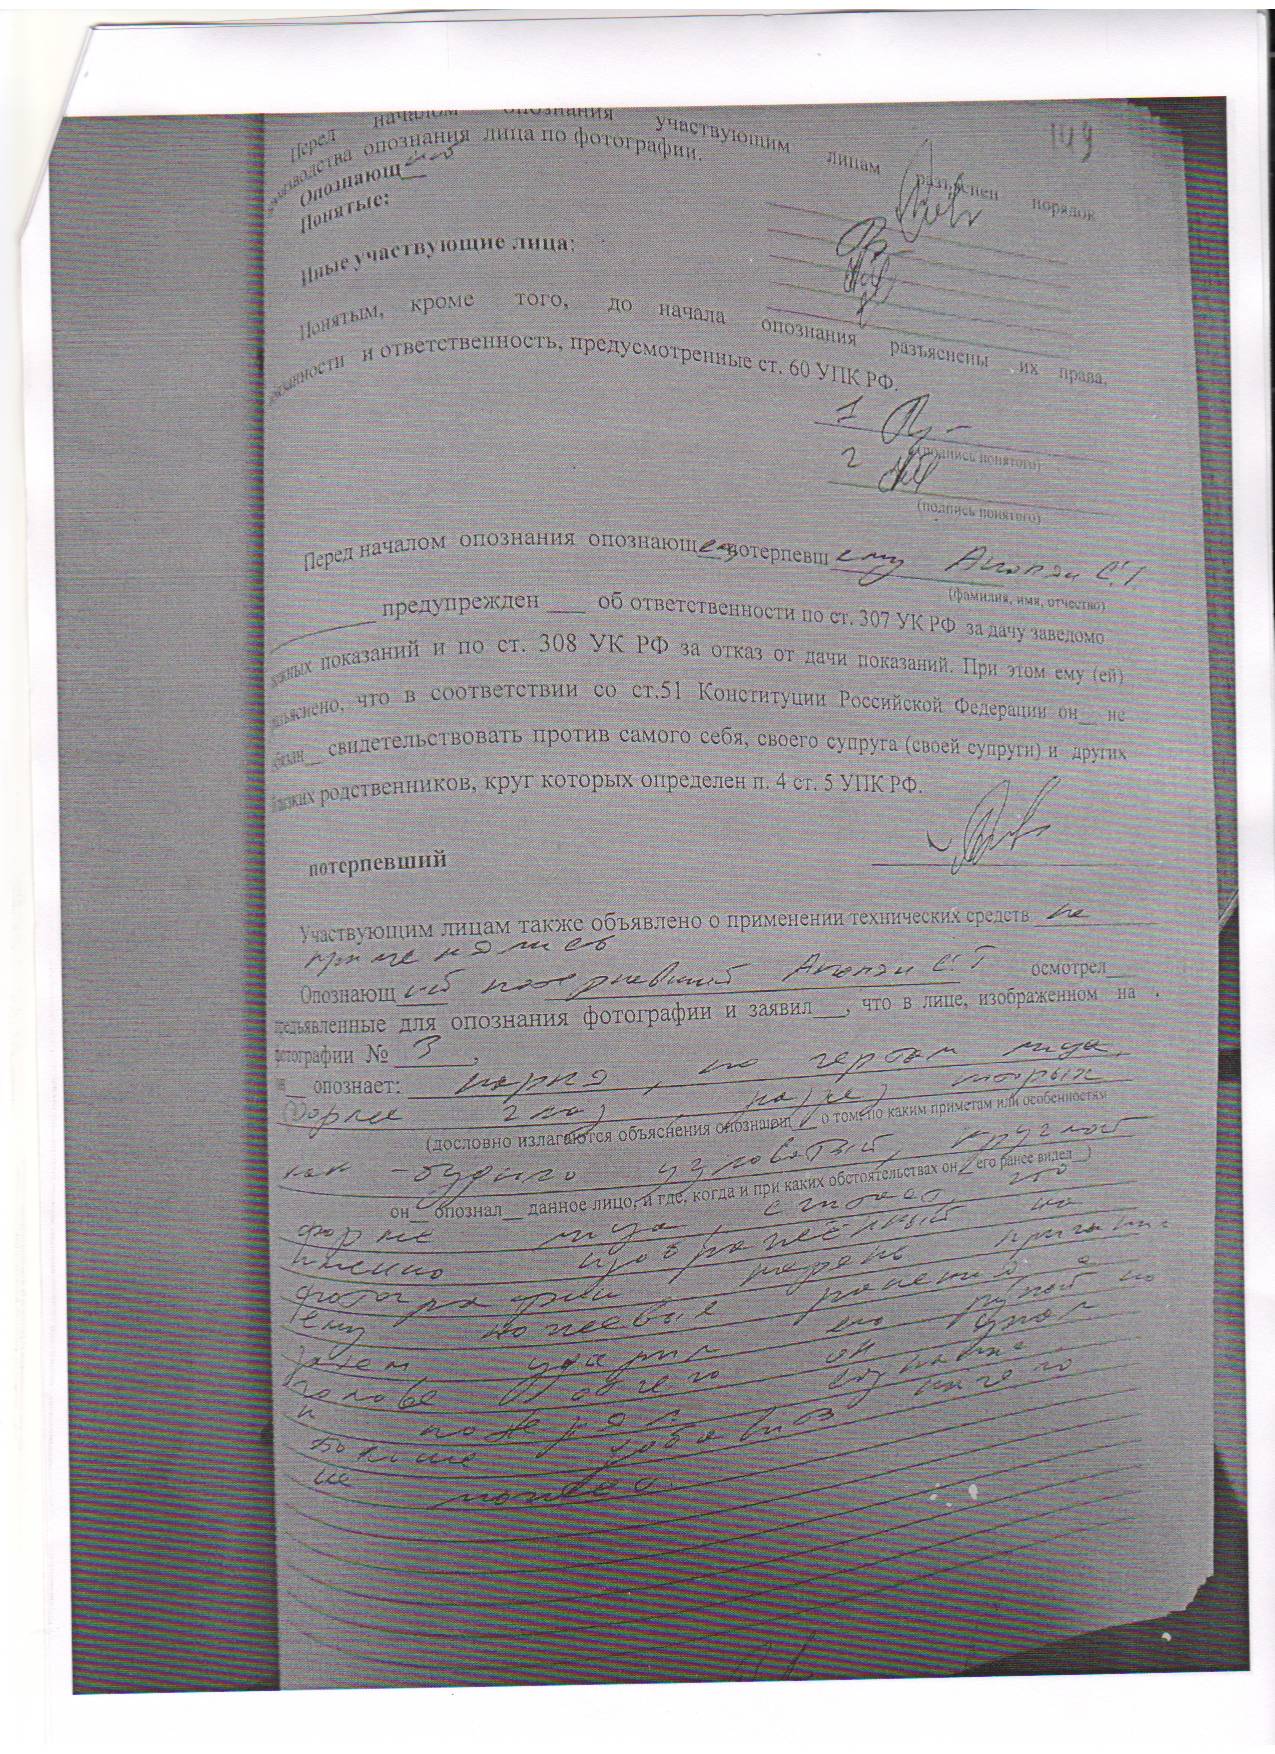 149
Перед началом опознания участвующим лицам разъяснен порядок
производства опознания лица по фотографии.
Опознающий
Понятые:
Иные участвующие лица:
Понятым, кроме того, до начала опознания разъяснены их права,
обязанности и ответственность, предусмотренные ст. 60 УПК РФ.
1
(подпись понятого)
2
(подпись понятого)
Перед началом опознания опознающему потерпевшему Акопян С.Г
(фамилия, имя, отчество)
предупрежден ___ об ответственности по ст. 307 УК РФ за дачу заведомо
ложных показаний и по ст. 308 УК РФ за отказ от дачи показаний. При этом ему (ей)
разъяснено, что в соответствии со ст.51 Конституции Российской Федерации он__ не
обязан__ свидетельствовать против самого себя, своего супруга (своей супруги) и других
близких родственников, круг которых определен п. 4 ст. 5 УПК РФ.
потерпевший
Участвующим лицам также объявлено о применении технических средств не
применялись
Опознающий потерпевший Акопян С.Г осмотрел__
предъявленные для опознания фотографии и заявил___, что в лице, изображенном на
фотографии № 3,
он__ опознает: парня, по чертам лица,
форме глаз, разрез которых
(дословно излагаются объяснения опознающ__ о том, по каким приметам или особенностям
как-будто узковатый, круглой
он__ опознал__ данное лицо, и где, когда и при каких обстоятельствах он__ его ранее видел__)
форме лица, считает, что
именно изображённый на
фотографии парень причинил
ему ножевые ранения а
затем ударил его по
голове от чего он упал
и потерял сознание.
Больше добавить ничего
не может.